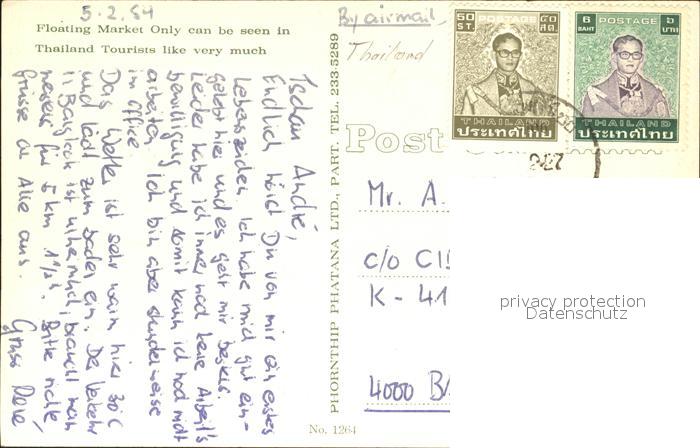 5.2.84
Floating Market Only can be seen in
Thailand Tourists like very much
Tschau André,
Endlich hörst Du von mir ein erstes
Lebenszeichen. Ich habe mich gut ein-
gelebt hier und es geht mir bestens.
Leider habe ich immer noch keine Arbeit's
bewilligung und somit kann ich noch nicht
arbeiten. Ich bin aber stundenweise
im Office.
Das Wetter ist sehr warm, hier 30°C
und lädt zum baden ein. Der Verkehr
in Bangkok ist unheimlich, braucht man
meistens für 5 km 1½ h. Bitte richte
Grüsse an Alle aus. Gruss
PHORNTHIP PHATANA LTD., PART. TEL. 233-5289
No. 1264
By airmail
Thailand
Post
50 ST. POSTAGE ๕๐ สต.
THAILAND
ประเทศไทย
6 BAHT POSTAGE ๖ บาท
THAILAND
ประเทศไทย
Mr. A.
c/o
K - 41
4000
privacy protection
Datenschutz